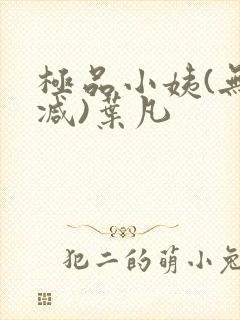 極品小姨(無
減)葉凡
犯二的萌小兔